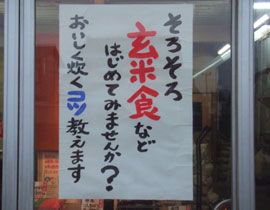 そろそろ
玄米食など
はじめてみませんか？
おいしく炊くコツ教えます